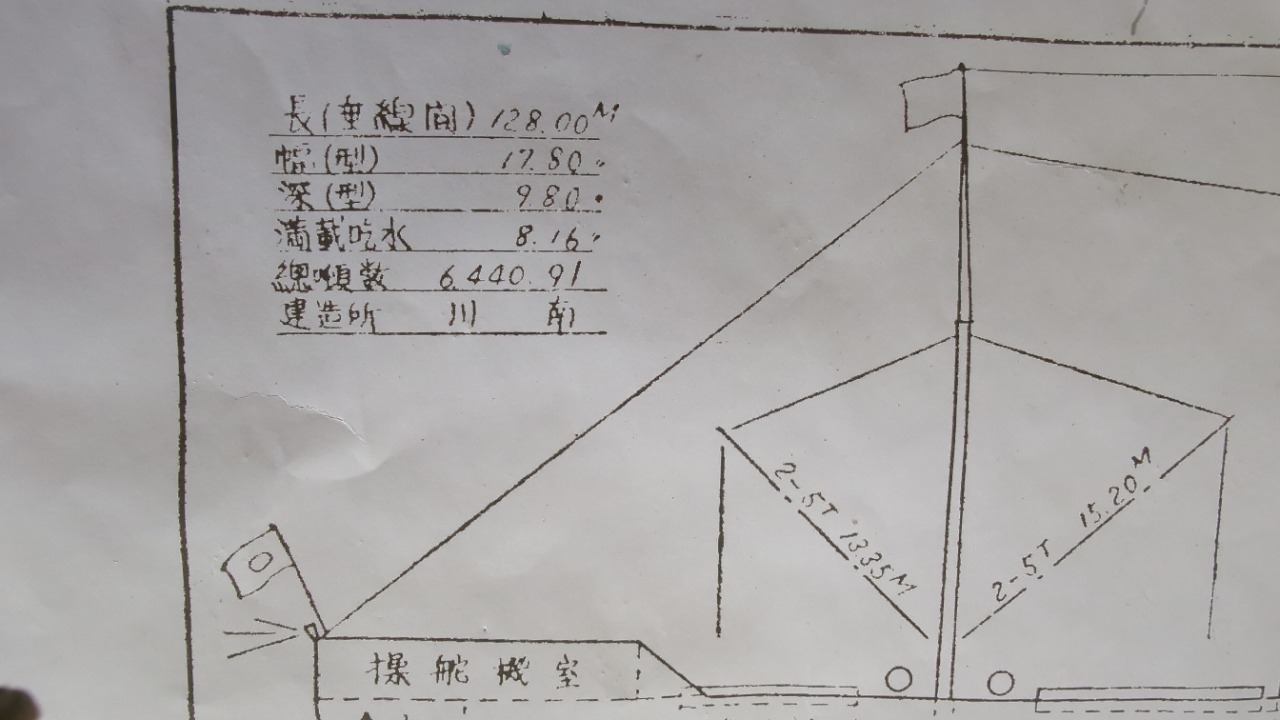 長(垂線間) 128.00M
幅(型) 17.80〃
深(型) 9.80〃
満載吃水 8.16〃
総噸数 6.440.91
建造所 川南
2-5T 13.35M
2-5T 15.20M
操舵機室